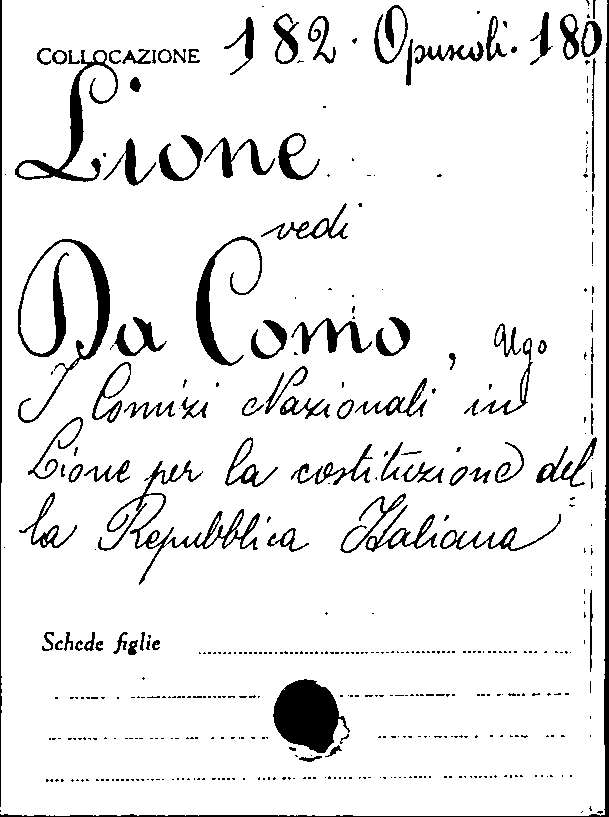 COLLOCAZIONE 182 · Opuscoli · 180
Lione
vedi
Da Como, Ugo
I Comizi Nazionali in
Lione per la costituzione del=
la Repubblica Italiana
Schede figlie